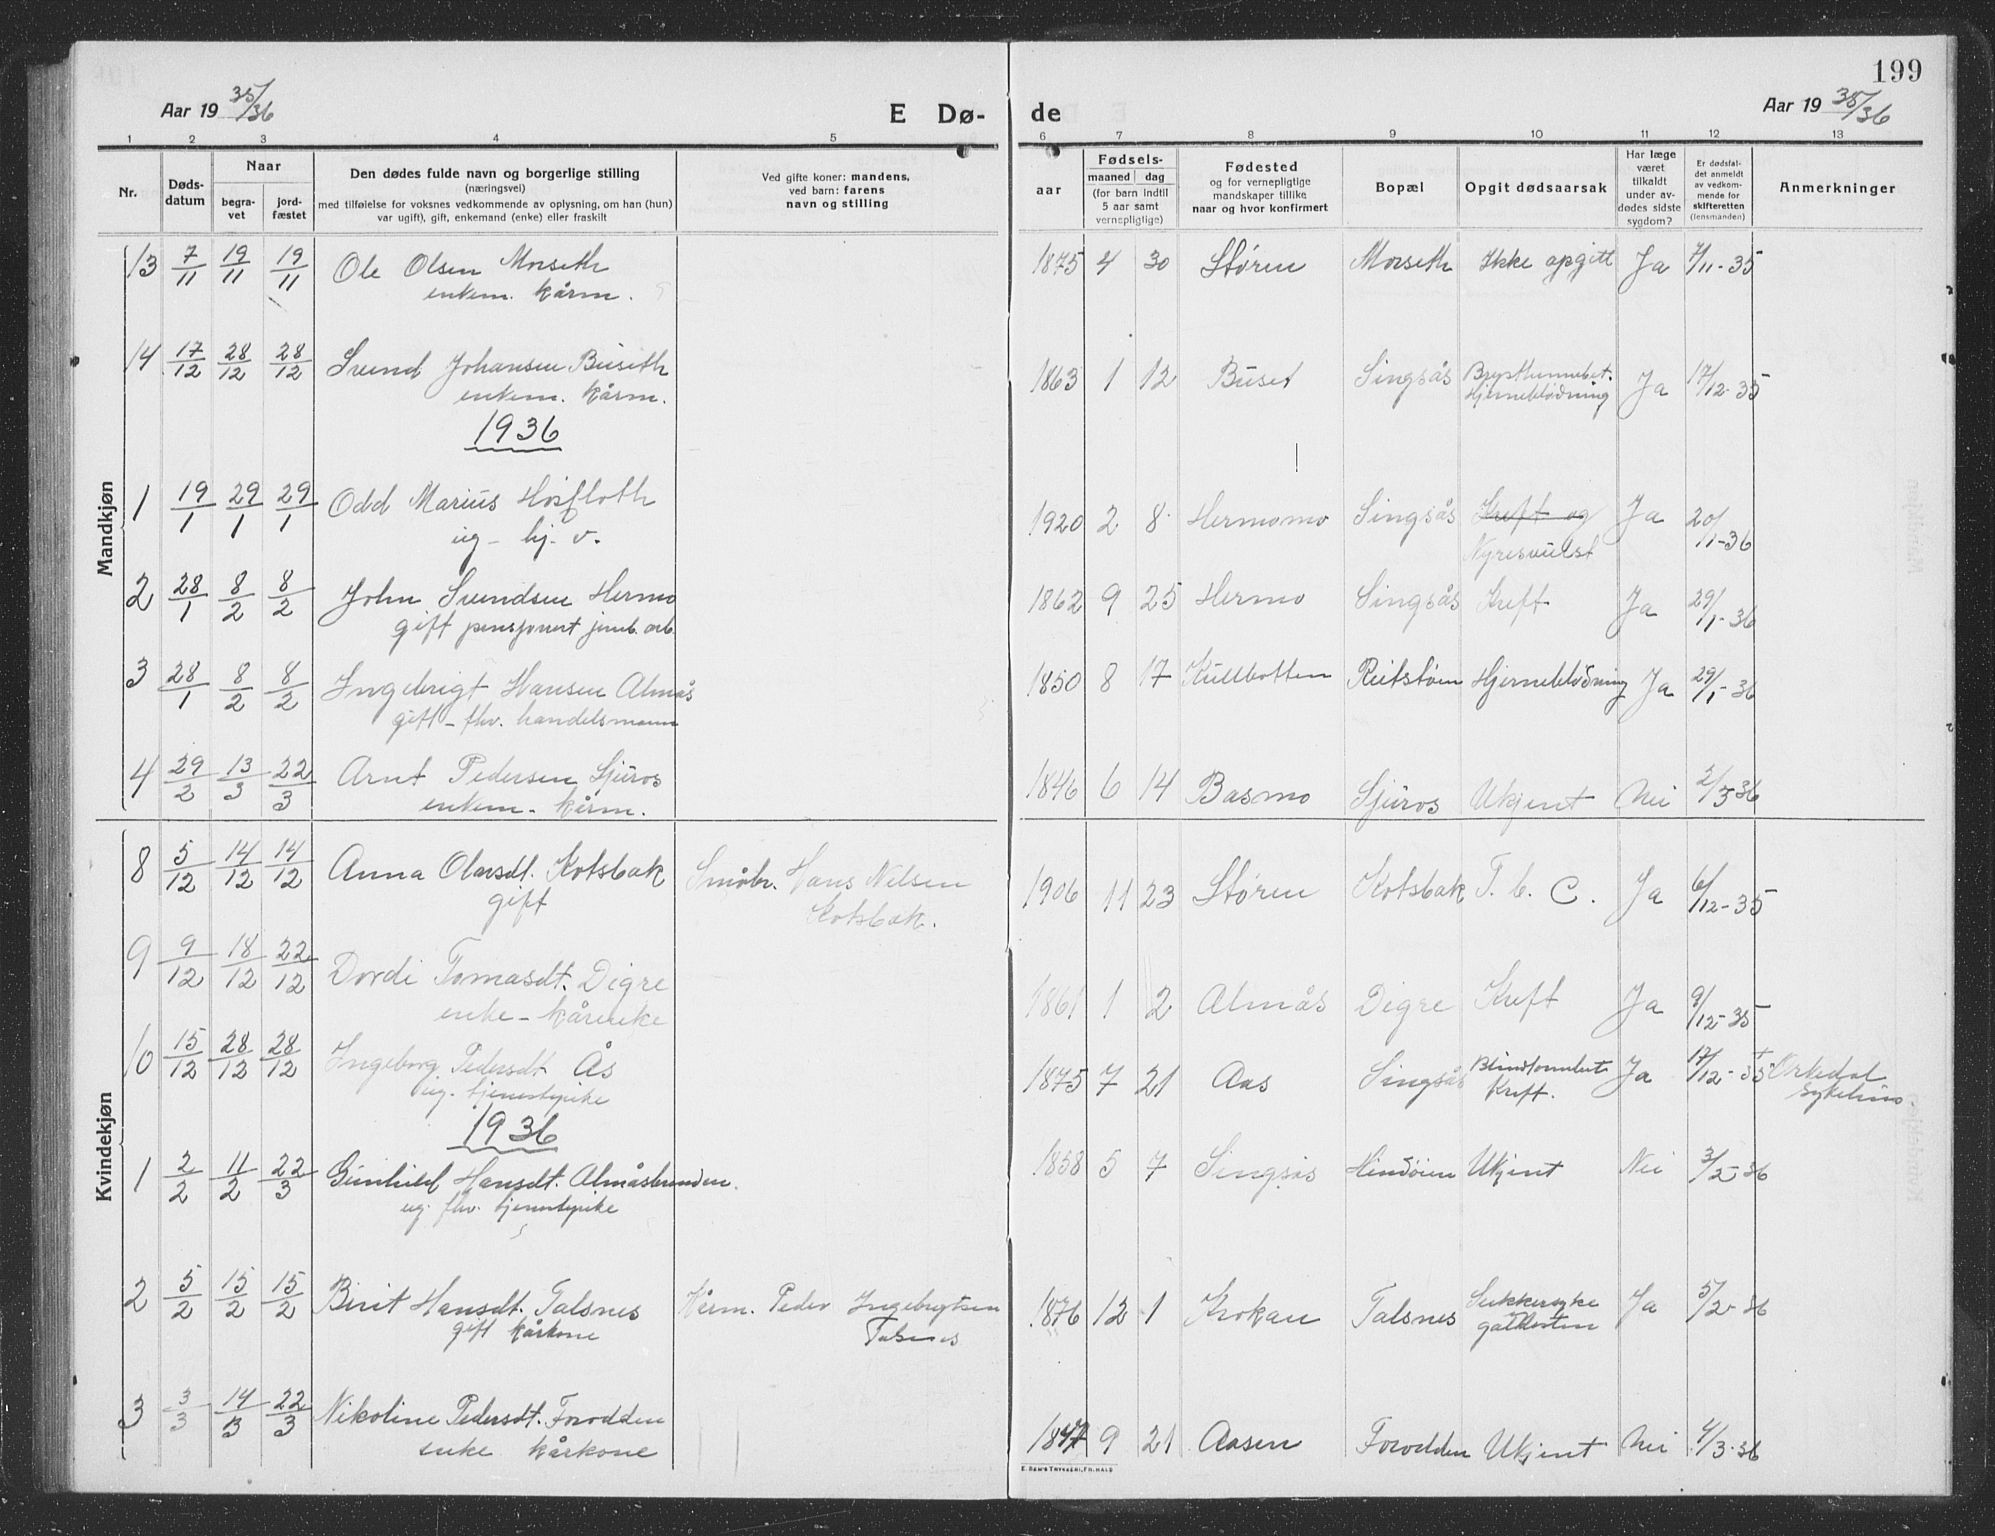 199
Aar 19 35/36 E Dø- de Aar 19 35/36
1 2 3 4 5 6 7 8 9 10 11 12 13
Nr.
Døds-
datum
Naar
begra-
vet
jord-
fæstet
Den dødes fulde navn og borgerlige stilling
(næringsvei)
med tilføielse for voksnes vedkommende av oplysning, om han (hun)
var ugift), gift, enkemand (enke) eller fraskilt
Ved gifte koner: mandens,
ved barn: farens
navn og stilling
aar
Fødsels-
maaned dag
(for barn indtil
5 aar samt
vernepligtige)
Fødested
og for vernepligtige
mandskaper tillike
naar og hvor konfirmert
Bopæl
Opgit dødsaarsak
Har læge
været
tilkaldt
under av-
dødes sidste
sygdom?
Er dødsfal-
det anmeldt
av vedkom-
mende for
skifteretten
(lensmanden)
Anmerkninger
Mandkjøn
13 7/11 19/11 19/11 Ole Olsen Morseth 1875 4 30 Støren Morseth Ikke opgitt Ja 7/11-35
enkem. kårm.
14 17/12 28/12 28/12 Svend Johansen Buseth 1863 1 12 Buset Singsås Ja 17/12-35
enkem. kårm. Hjerneblødning
1936
1 19/1 29/1 29/1 Odd Marius Hosfloth 1920 2 8 Hermomo Singsås Kreft og Ja 20/1-36
ug. hj. v. Nyresvulst
2 28/1 8/2 8/2 John Svendsen Hermo 1862 9 25 Hermo Singsås Kreft Ja 29/1-36
gift pensjonert jernb. arb.
3 28/1 8/2 8/2 Ingebrigt Hansen Almås 1850 8 17 Kullbotten Reitstøen Hjerneblødning Ja 29/1-36
gift - fhv. handelsmann
4 29/2 13/3 22/3 Arnt Pedersen Sjuros 1846 6 14 Basmo Sjuros Ukjent Nei 2/3-36
enkem. kårm.
Kvindekjøn
8 5/12 14/12 14/12 Anna Olavsdt. Kotsbak Småbr. Hans Nilsen 1906 11 23 Støren Kotsbak T. b. C. Ja 6/12-35
gift Kotsbak.
9 9/12 18/12 22/12 Dordi Tomasdt. Digre 1861 1 2 Almås Digre Kreft Ja 9/12-35
enke - kårenke
10 15/12 28/12 28/12 Ingeborg Pedersdt Ås 1875 7 21 Aas Singsås Blindtarmbet. Ja 17/12-35 + Orkedal
ug. tjenestpike Kreft. sykehus.
1936
1 2/2 11/2 22/3 Gunhild Hansdt. Almåsbunden. 1858 5 7 Singsås Hindøien Ukjent Nei 3/2-36
ug. fhv. tjenestpike
2 5/2 15/2 15/2 Birit Hansdt. Talsnes Kårm. Peder Ingebrigtsen 1876 12 1 Krokan Talsnes Sukkersyke Ja 5/2-36
gift kårkone Talsnes gallesten
3 3/3 14/3 22/3 Nikoline Pedersdt. Forodden 1847 9 21 Aasen Forodden Ukjent Nei 4/3-36
enke kårkone
E. SEM'S TRYKKERI, FR.HALD